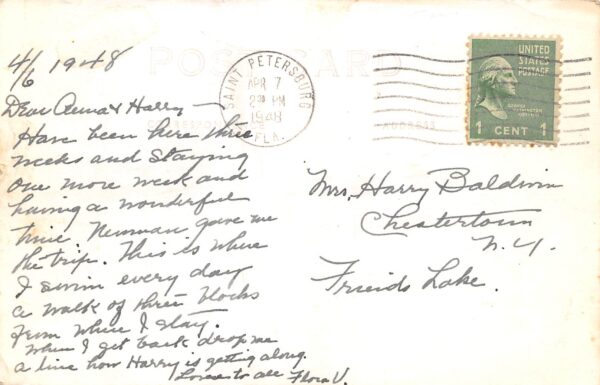 4/6 1948
POST CARD
SAINT PETERSBURG
APR 7
2 30 PM
1948
FLA.
UNITED
STATES
POSTAGE
1 CENT 1
ADDRESS
Dear Anna & Harry —
Have been here three
weeks and staying
one more week and
having a wonderful
time. Newman gave me
the trip. This is where
I swim every day
a walk of three blocks
from where I stay.
When I get back drop me
a line how Harry is getting along.
Love to all Flora V.
Mrs. Harry Baldwin
Chestertown
N.Y.
Friends Lake.